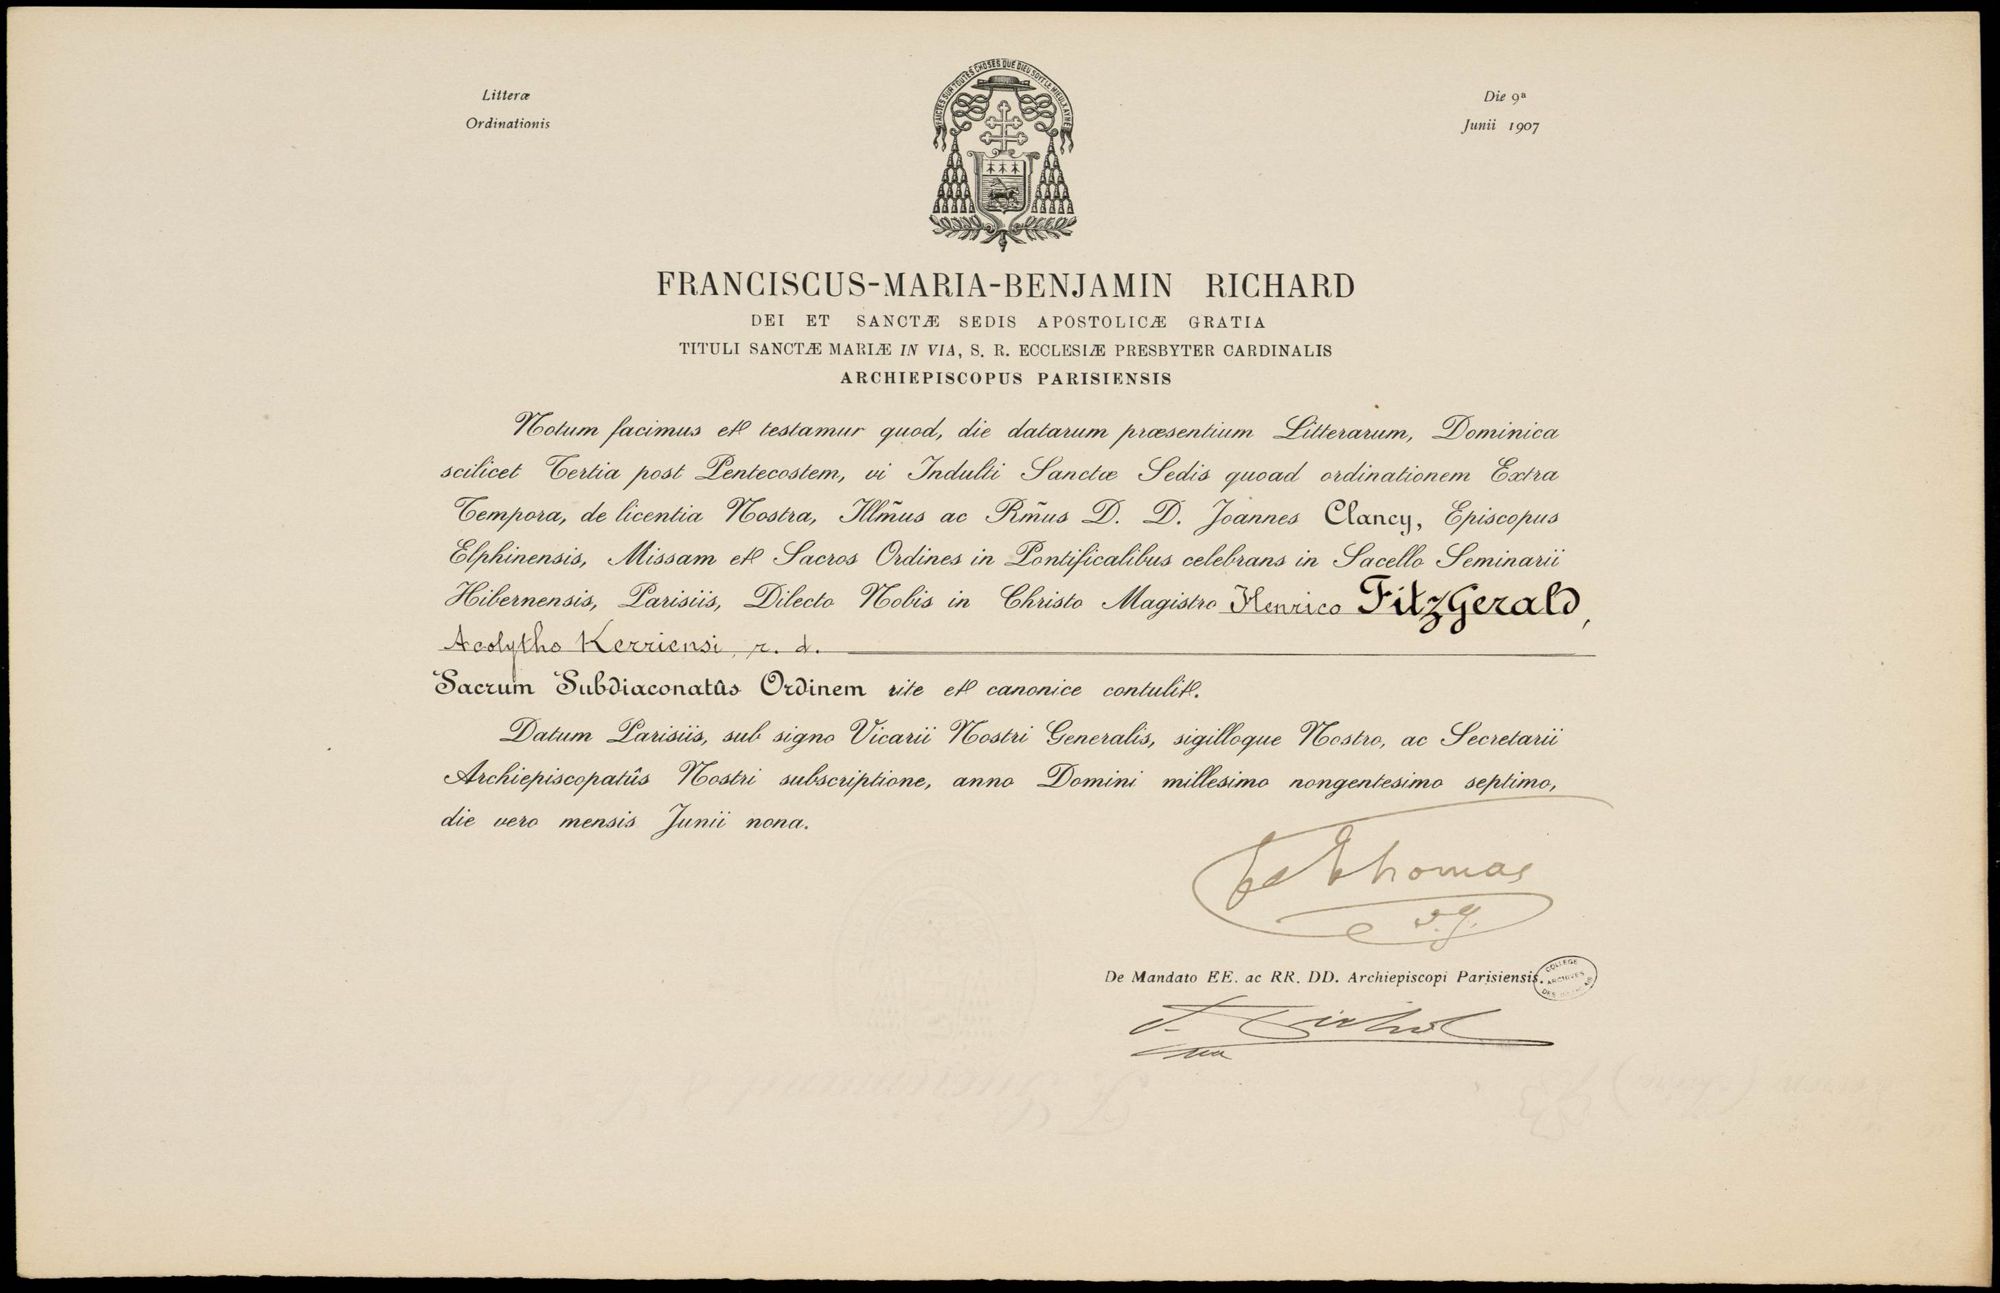 Litteræ
Ordinationis
Die 9ª
Junii 1907
FAICTES SUR TOUTES CHOSES QUE DIEU SOYT LE MIEULX AYMÉ
FRANCISCUS-MARIA-BENJAMIN RICHARD
DEI ET SANCTÆ SEDIS APOSTOLICÆ GRATIA
TITULI SANCTÆ MARIÆ IN VIA, S. R. ECCLESIÆ PRESBYTER CARDINALIS
ARCHIEPISCOPUS PARISIENSIS
Notum facimus et testamur quod, die datarum præsentium Litterarum, Dominica
scilicet Tertia post Pentecostem, vi Indulti Sanctæ Sedis quoad ordinationem Extra
Tempora, de licentia Nostra, Illm̃us ac Rm̃us D. D. Joannes Clancy, Episcopus
Elphinensis, Missam et Sacros Ordines in Pontificalibus celebrans in Sacello Seminarii
Hibernensis, Parisiis, Dilecto Nobis in Christo Magistro Henrico FitzGerald,
Acolytho Kerriensi, r. d.
Sacrum Subdiaconatûs Ordinem rite et canonice contulit.
Datum Parisiis, sub signo Vicarii Nostri Generalis, sigilloque Nostro, ac Secretarii
Archiepiscopatûs Nostri subscriptione, anno Domini millesimo nongentesimo septimo,
die vero mensis Junii nona.
Thomas
v.g.
De Mandato EE. ac RR. DD. Archiepiscopi Parisiensis.
COLLEGE
ARCHIVES
DES